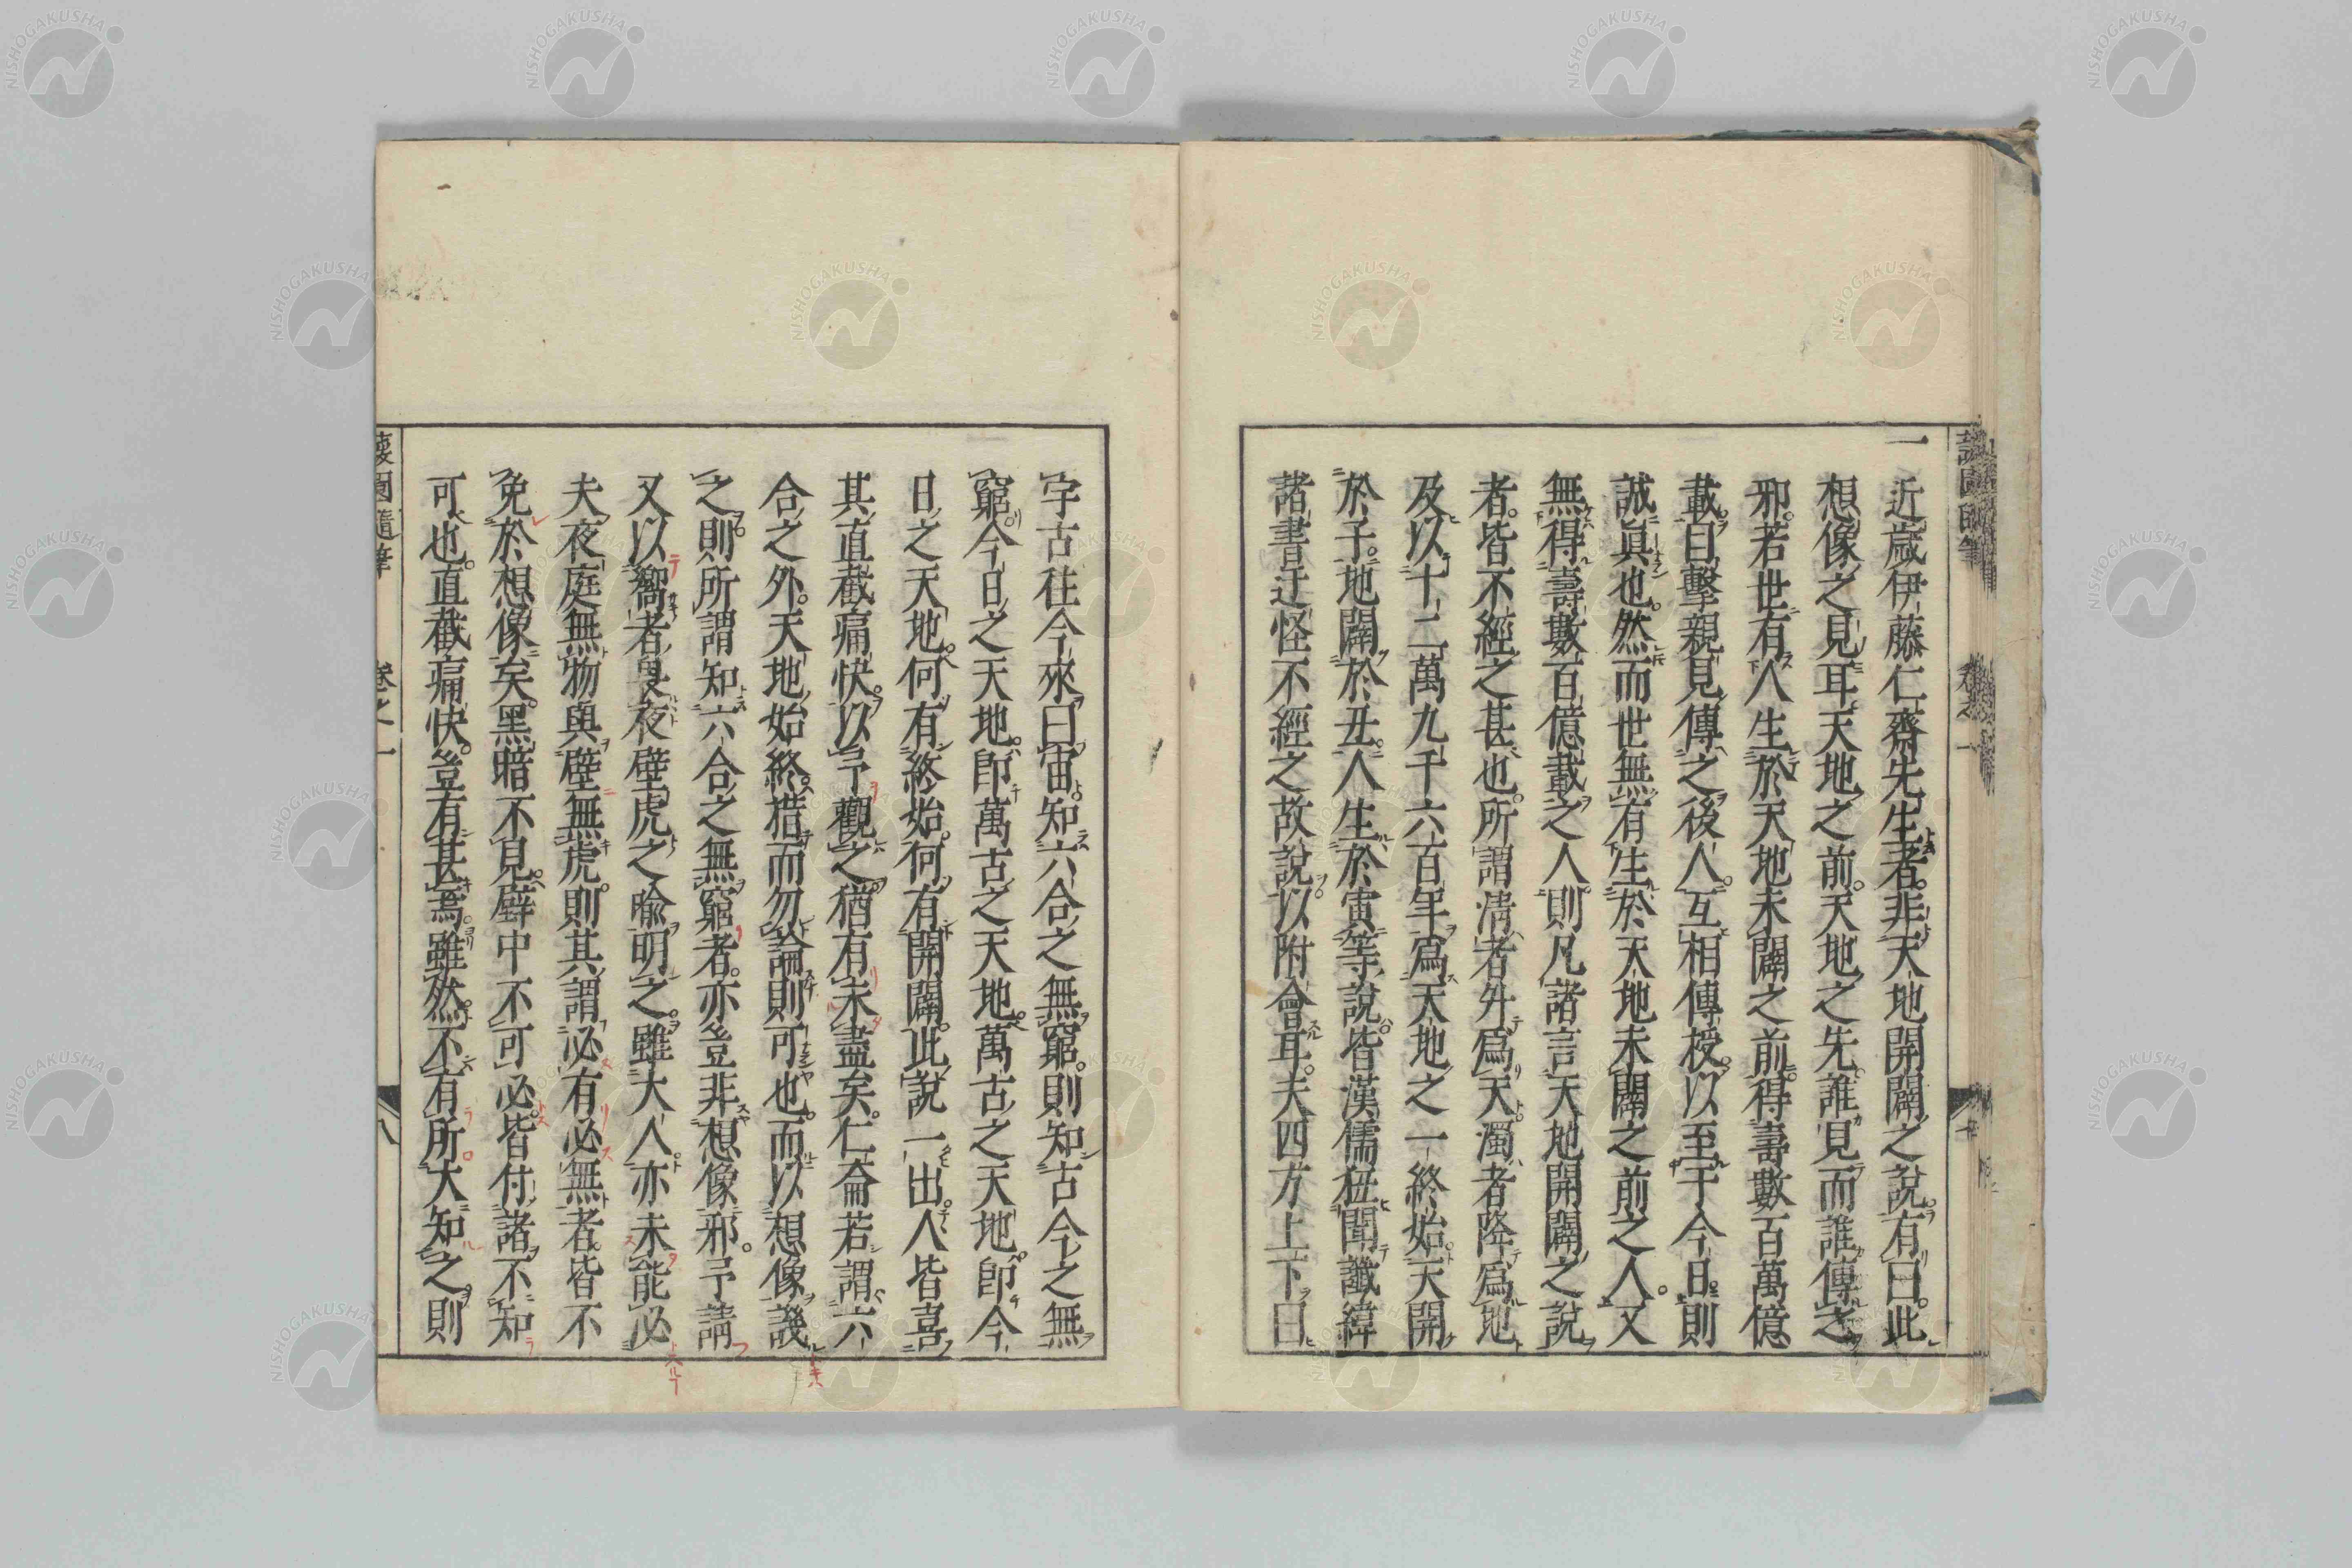 一近歲伊藤仁齋先生者非天地開闢之說有曰此
想像之見耳天地之前天地之先誰見而誰傳之
邪若世有人生於天地未闢之前得壽數百萬億
載目擊親見傳之後人互相傳授以至于今日則
誠眞也然而世無有生於天地未闢之前之人又
無得壽數百億載之人則凡諸言天地開闢之說
者皆不經之甚也所謂淸者升爲天濁者降爲地
及以十二萬九千六百年爲天地之一終始天開
於子地闢於丑人生於寅等說皆漢儒狃聞讖緯
諸書迂怪不經之故說以附會耳夫四方上下曰
宇古往今來曰宙知六合之無窮則知古今之無
窮今日之天地卽萬古之天地萬古之天地卽今
日之天地何有終始何有開闢此說一出人皆喜
其直截痛快以予觀之猶有未盡矣仁齋若謂六
合之外天地始終措而勿論則可也而以想像譏
之則所謂知六合之無窮者亦豈非想像邪予請
又以嚮者畏夜壁虎之喻明之雖大人亦未能必
夫夜庭無物與壁無虎則其謂必有必無者皆不
免於想像矣黑暗不見壁中不可必皆付諸不知
可也直截痛快豈有甚焉雖然不有所大知之則
護園隨筆 卷之一 八
卷之一
NISHOGAKUSHA